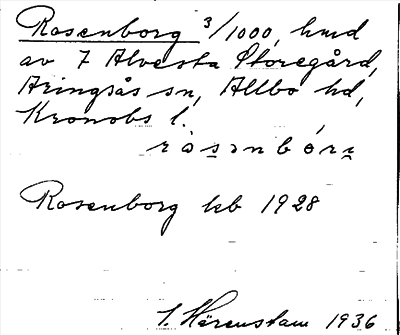 Rosenborg 3/1000, hmd
av 7 Alvesta Storegård,
Aringsås sn, Allbo hd,
Kronobs l.
ròsɘnbórn
Rosenborg kb 1928
Härenstam 1936